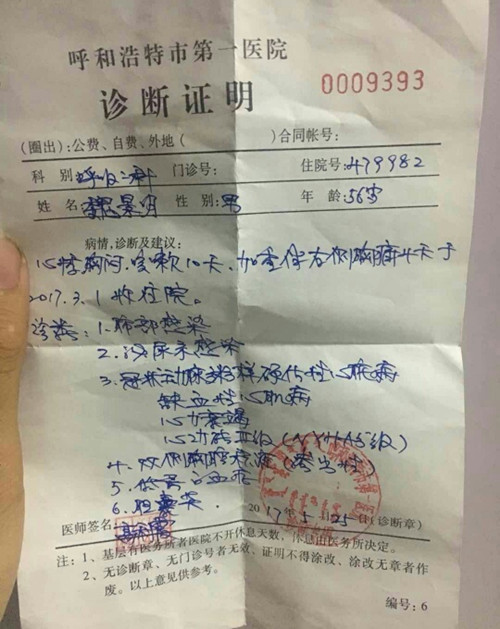 呼和浩特市第一医院
0009393
诊断证明
(圈出):公费、自费、外地( )合同帐号:
科 别 呼吸二科 门诊号: 住院号:479982
姓 名 性 别:男 年 龄:56岁
病情,诊断及建议:
心悸胸闷、咳嗽10天、加重伴右侧胸痛4天于
2017.3.1收住院。
诊断:1.肺部感染
2.泌尿系感染
3.冠状动脉粥样硬化性心脏病
缺血性心肌病
心力衰竭
心功能Ⅲ级(NYHA分级)
4.双侧胸腔积液
5.低蛋白血症
6.胆囊炎
医师签名: 2017年5月25日(诊断章)
注:1、基层有医务所者医院不开休息天数,休息由医务所决定。
2、无诊断章、无门诊号者无效、证明不得涂改、涂改无章者作
废。以上意见供参考。
编号:6